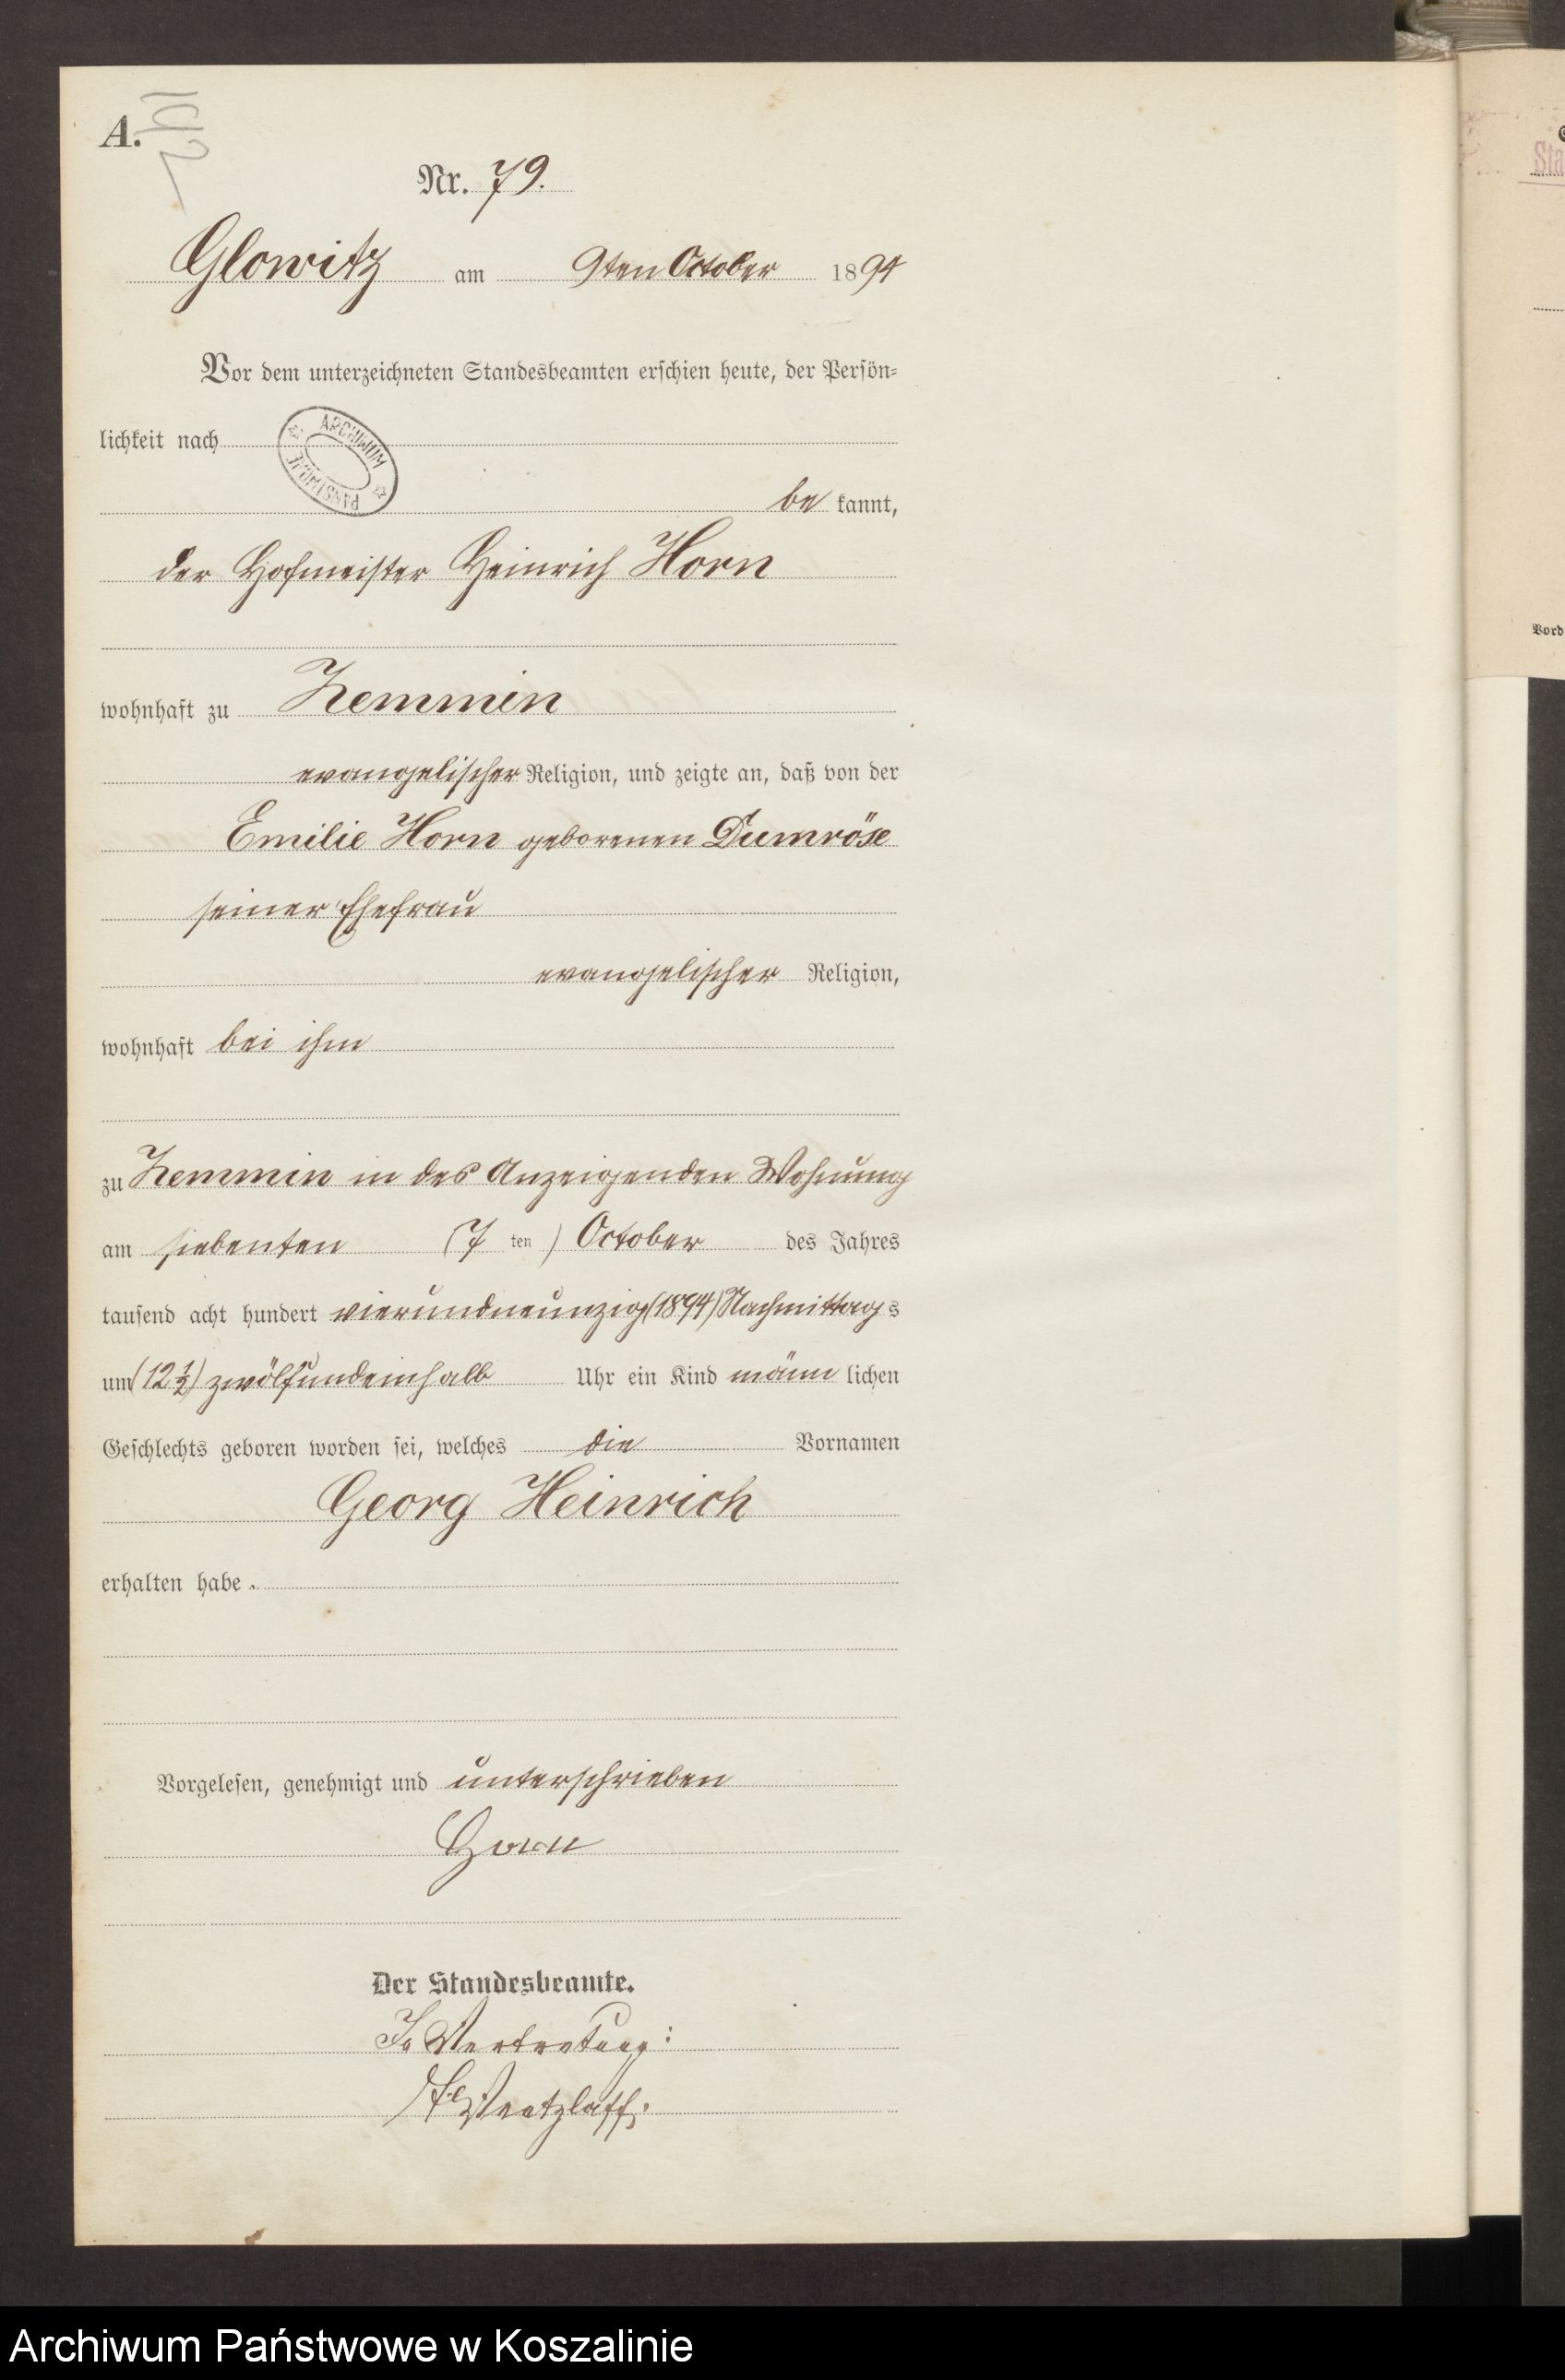 A.
Nr. 79.
Glowitz am 9ten October 1894
Vor dem unterzeichneten Standesbeamten erschien heute, der Persön-
lichkeit nach
ARCHIWUM PAŃSTWOWE
be kannt,
der Hofmeister Heinrich Horn
wohnhaft zu Zemmin
evangelischer Religion, und zeigte an, daß von der
Emilie Horn geborenen Dumröse
seiner Ehefrau
evangelischer Religion,
wohnhaft bei ihm
zu Zemmin in des Anzeigenden Wohnung
am siebenten (7 ten) October des Jahres
tausend acht hundert vierundneunzig (1894) Nachmittags
um (12 1/2) zwölfundeinhalb Uhr ein Kind männ lichen
Geschlechts geboren worden sei, welches die Vornamen
Georg Heinrich
erhalten habe.
Vorgelesen, genehmigt und unterschrieben
Horn
Der Standesbeamte.
In Vertretung:
Sta
Vord
Archiwum Państwowe w Koszalinie